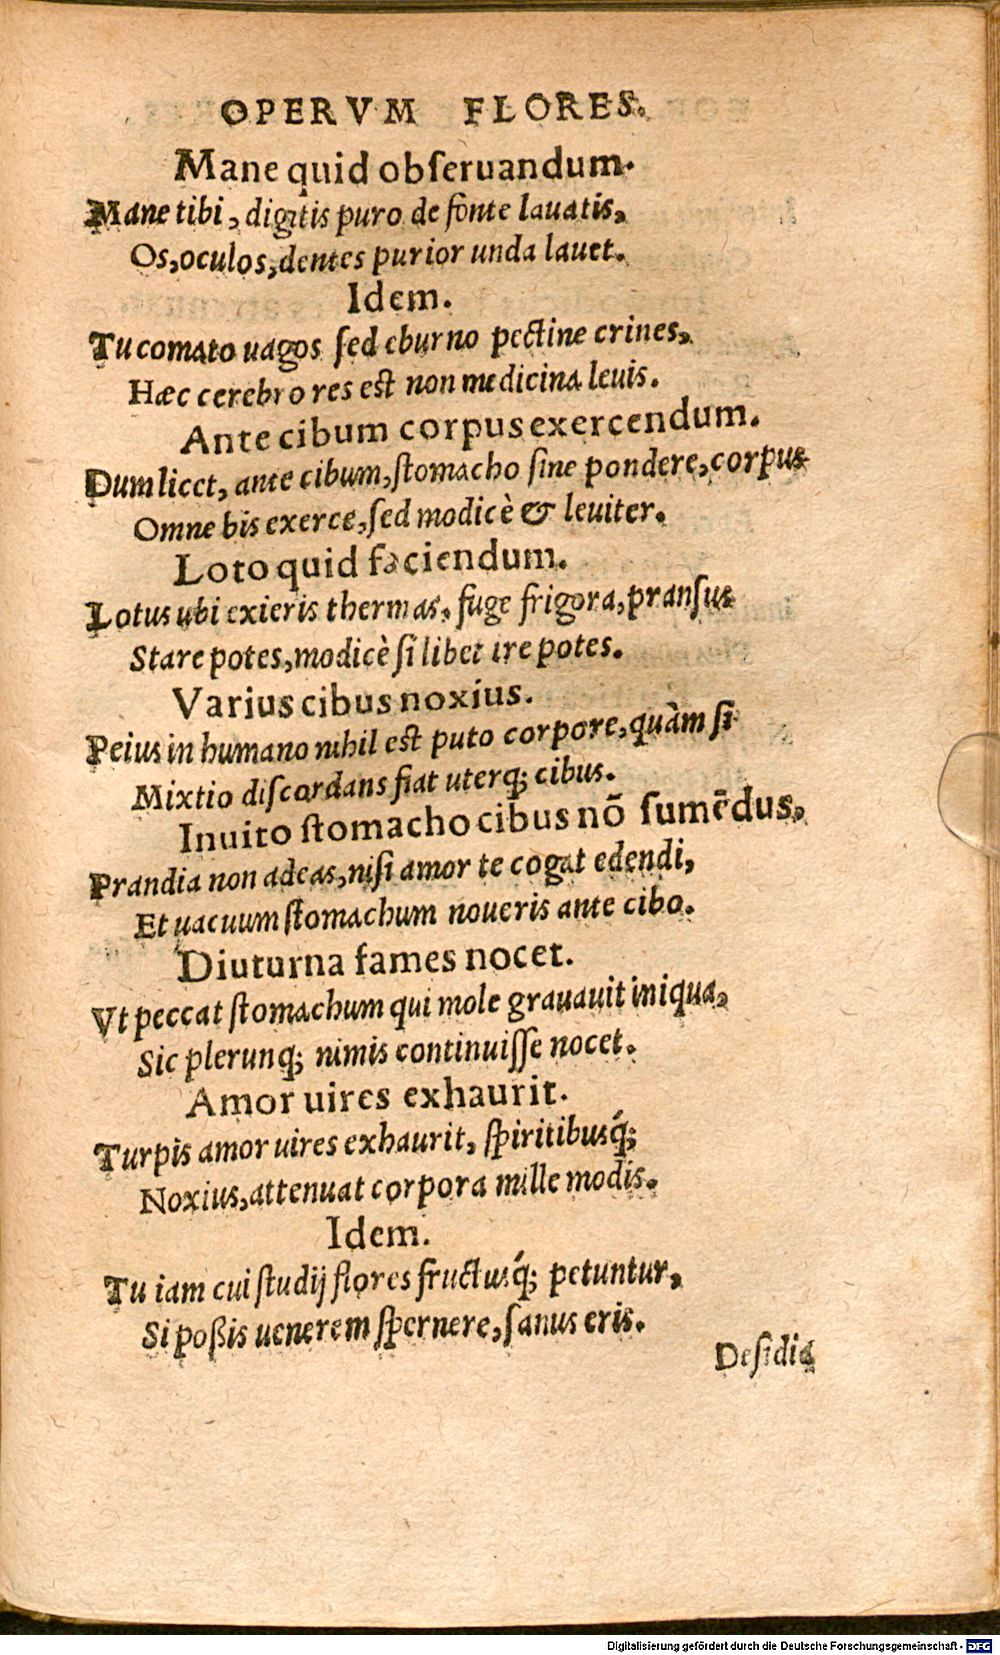 OPERVM FLORES.
Mane quid obſeruandum.
Mane tibi, digitis puro de fonte lauatis,
Os, oculos, dentes purior unda lauet.
Idem.
Tu comato uagos ſed eburno pectine crines,
Hæc cerebro res est non medicina leuis.
Ante cibum corpus exercendum.
Dum licet, ante cibum, ſtomacho ſine pondere, corpus
Omne bis exerce, ſed modicè & leuiter.
Loto quid faciendum.
Lotus ubi exieris thermas, fuge frigora, pranſus
Stare potes, modicè ſi libet ire potes.
Varius cibus noxius.
Peius in humano nihil est puto corpore, quàm ſi
Mixtio diſcordans fiat uterq; cibus.
Inuito ſtomacho cibus nō ſumēdus.
Prandia non adeas, niſi amor te cogat edendi,
Et uacuum ſtomachum noueris ante cibo.
Diuturna fames nocet.
Vt peccat ſtomachum qui mole grauauit iniqua,
Sic plerunq; nimis continuiſſe nocet.
Amor uires exhaurit.
Turpis amor uires exhaurit, ſpiritibusq́;
Noxius, attenuat corpora mille modis.
Idem.
Tu iam cui ſtudij flores fructusq́; petuntur,
Si poßis uenerem ſpernere, ſanus eris.
Deſidia
Digitalisierung gefördert durch die Deutsche Forschungsgemeinschaft - DFG